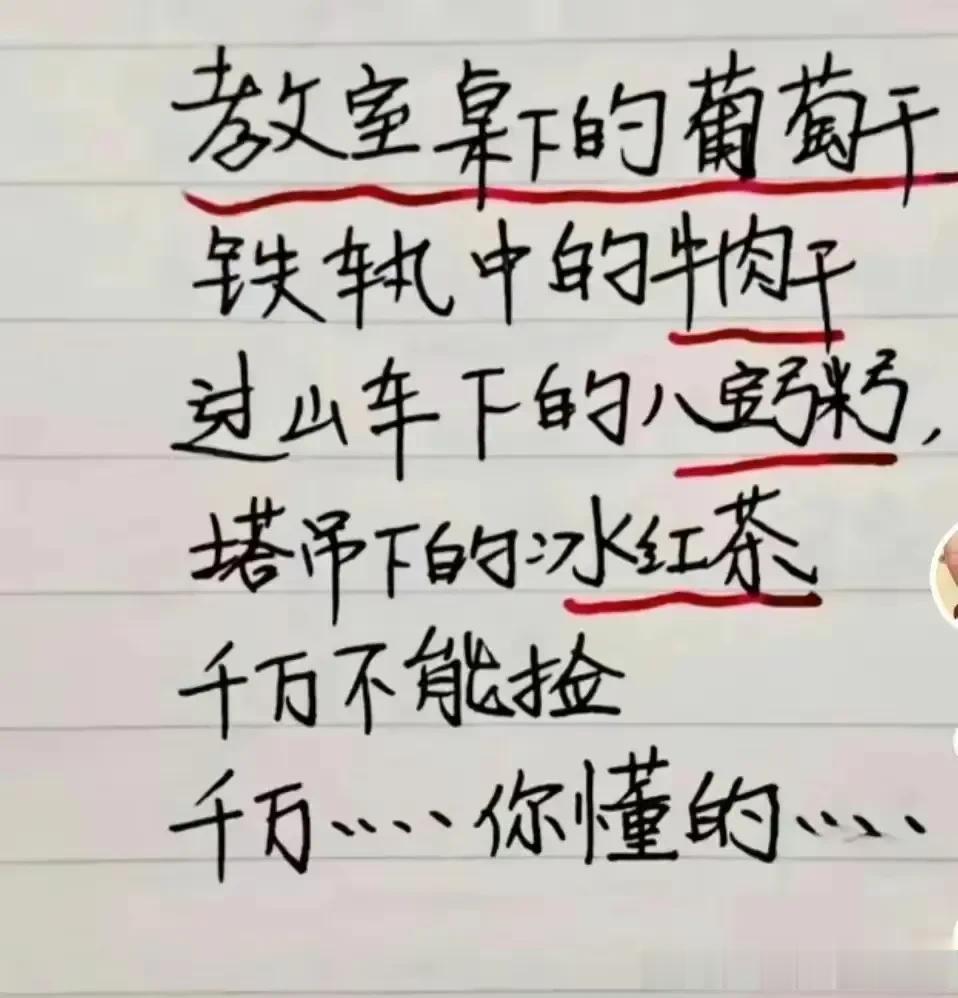 教室桌下的葡萄干
铁轨中的牛肉干
过山车下的八宝粥,
塔吊下的冰红茶
千万不能捡
千万....你懂的....